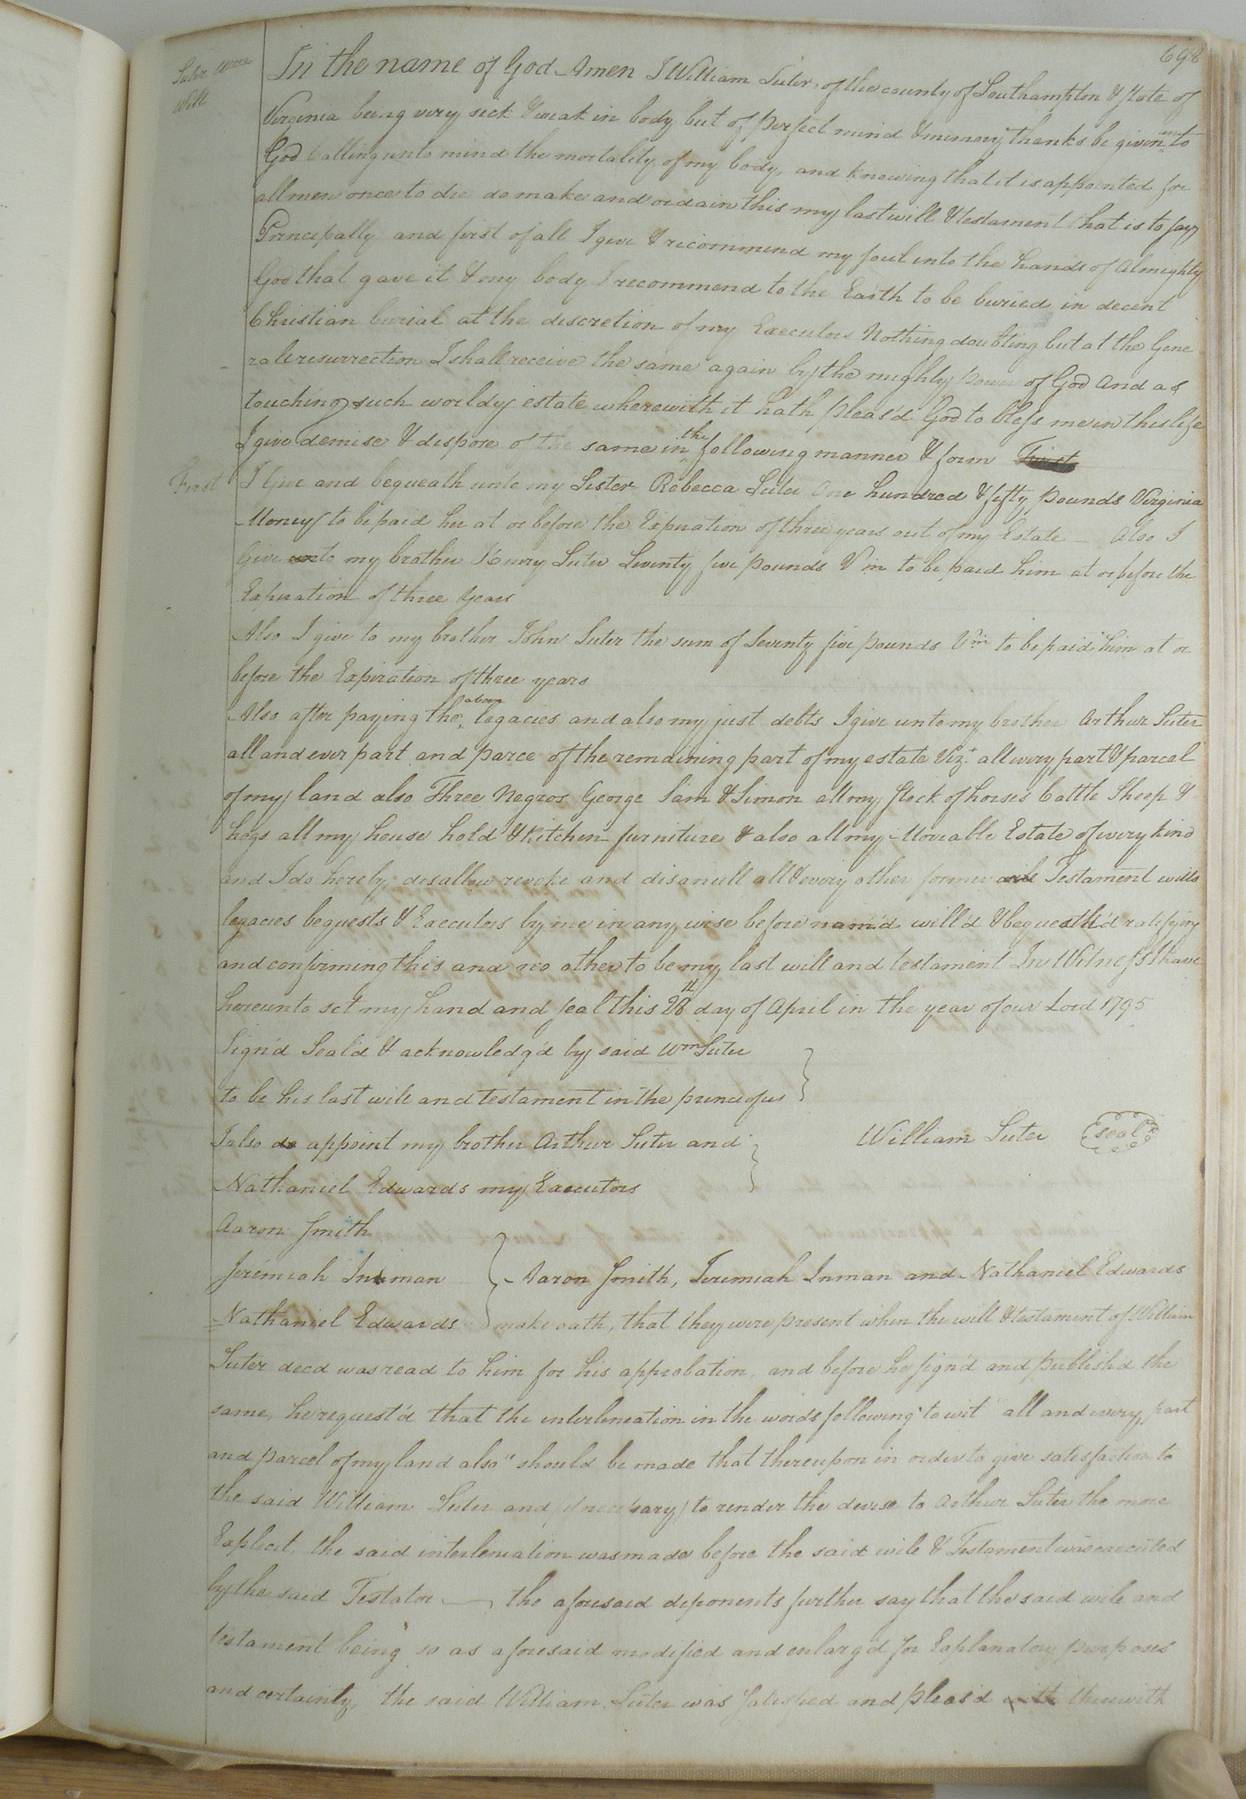 698
Suter Wms
Will
In the name of God Amen I William Suter, of the county of Southampton & State of
Virginia being very sick & weak in body but of perfect mind & memory thanks be given unto
God Calling unto mind the mortality of my body, and knowing that it is appointed for
all men once to die do make and ordain this my last will & testament that is to say
Principally and first of all I give & recommend my soul into the hands of Almighty
God that gave it & my body I recommend to the Earth to be buried in decent
Christian burial at the discretion of my Executors Nothing doubting but at the Gene
ral resurrection I shall receive the same again by the mighty power of God And as
touching such worldy estate wherewith it hath pleas'd God to bless me in this life
I give demise & dispose of the same in the following manner & form First
First I Give and bequeath unto my Sister Rebecca Suter One hundred & fifty pounds Virginia
Money to be paid her at or before the Expiration of three years out of my Estate — Also I
Give unto my brother Henry Suter Seventy five pounds Vin to be paid him at or before the
Expiration of three years
Also I give to my brother John Suter the sum of Seventy five pounds Vin to be paid him at or
before the Expiration of three years
Also after paying the above legacies and also my just debts I give unto my brother Arthur Suter
all and ever part and parce of the remaining part of my estate Viz. all every part & parcel
of my land also Three Negros George Sam & Simon all my Stock of horses Cattle Sheep &
hogs all my house hold & Kitchen furniture & also all my Moveable Estate of every kind
and I do hereby disallow revoke and disanull all & every other former Testament wills
legacies bequests & Executors by me in any wise before nam'd will'd & bequeath'd ratifying
and confirming this and no other to be my last will and testament In Witness I have
hereunto set my hand and seal this 28th day of April in the year of our Lord 1795
Sign'd Seal'd & acknowledg'd by said Wm Suter
to be his last will and testament in the prence of us
I also do appoint my brother Arthur Suter and William Suter (seal)
Nathaniel Edwards my Executors
Aaron Smith
Jeremiah Inman Aaron Smith, Jeremiah Inman and Nathaniel Edwards
Nathaniel Edwards make oath, that they were present when the will & testament of William
Suter decd was read to him for his approbation, and before he sign'd and publish'd the
same, he request'd that the interlineation in the words following to wit "all and every part
and parcel of my land also" should be made that thereupon in order to give satisfaction to
the said William Suter and (if necessary) to render the devise to Arthur Suter the more
Explicit, the said interleneation was made before the said will & Testament was executed
by the said Testator —, the aforesaid deponents further say that the said will and
testament being so as aforesaid modified and enlarg'd for Explanatory purposes
and certainty, the said William Suter was satisfied and pleas'd with therewith